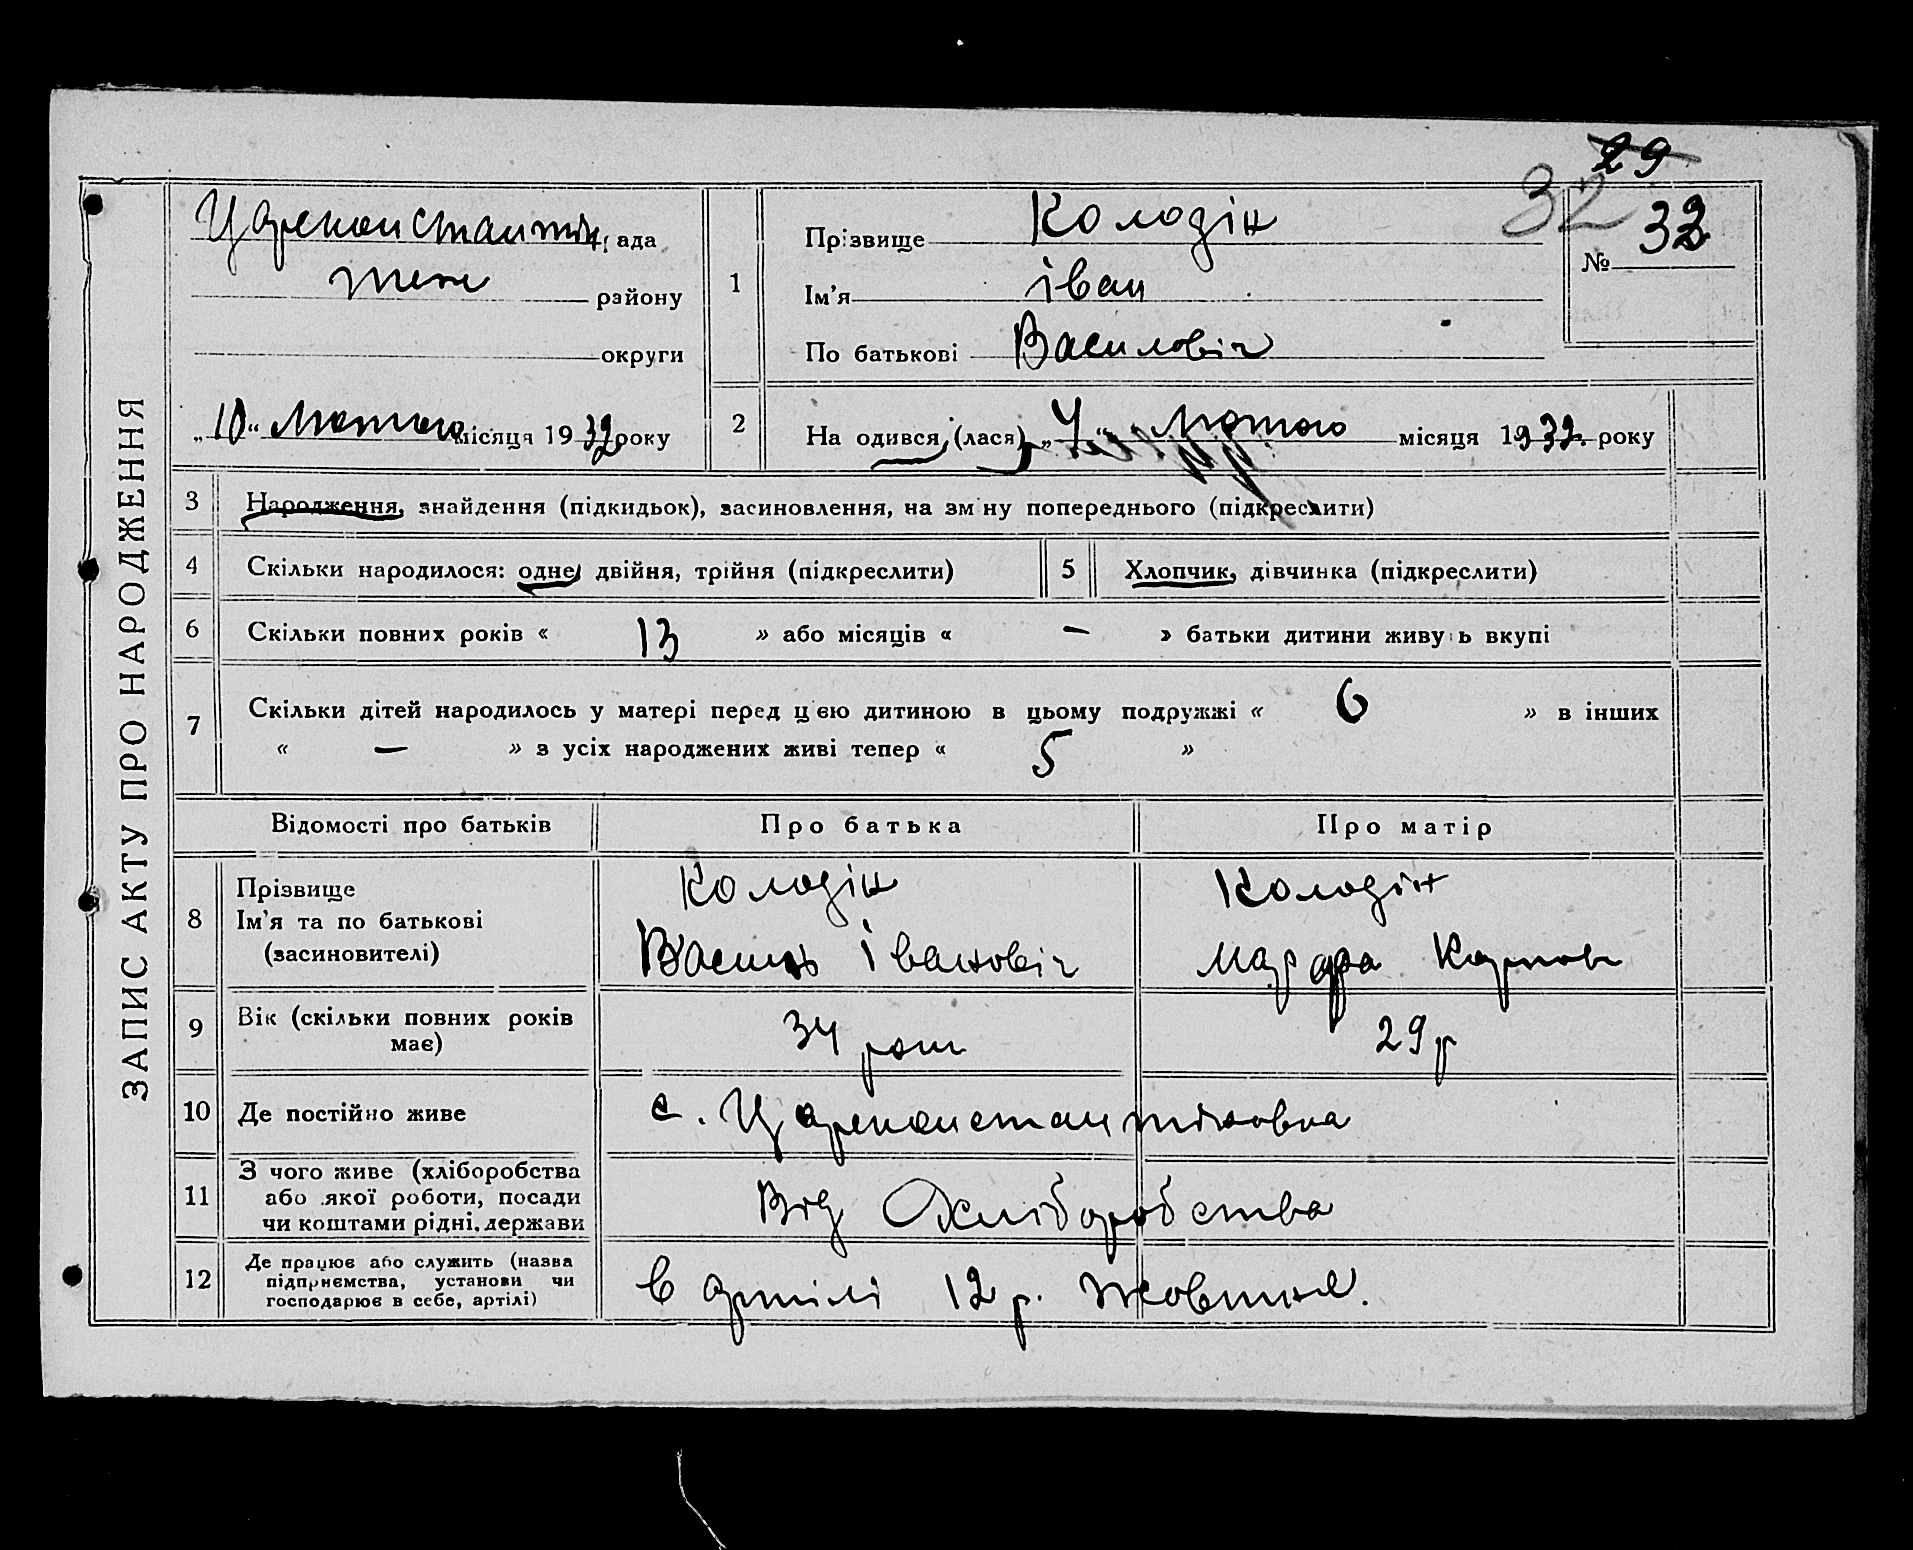 ЗАПИС АКТУ ПРО НАРОДЖЕННЯ
29
32
№ 32
Царекокстантін рада
теж району
округи
„10“ Лютого місяця 1932 року
1
Прізвище Колодін
Ім'я іван
По батькові Василовіч
2
На одився, (лася) „4“ Лютого місяця 1932. року
3 Народження, знайдення (підкидьок), засиновлення, на зм ну попереднього (підкреслити)
4 Скільки народилося: одне, двійня, трійня (підкреслити) 5 Хлопчик, дівчинка (підкреслити)
6 Скільки повних років « 13 » або місяців « — » батьки дитини живу ь вкупі
7 Скільки дітей народилось у матері перед цією дитиною в цьому подружжі « 6 » в інших
« — » з усіх народжених живі тепер « 5 »
Відомості про батьків Про батька Про матір
8 Прізвище
Ім'я та по батькові
(засиновителі)
Колодін
Василь Івановіч
Колодін
Марфа Карпов
9 Вік (скільки повних років
має)
34 рокі
29 р
10 Де постійно живе с. Цареконстантіновка
11 З чого живе (хліборобства
або якої роботи, посади
чи коштами рідні, держави
Від Хліборобства
12 Де працює або служить (назва
підприємства, установи чи
господарює в себе, артілі)
в артілі 12 р. Жовтня.